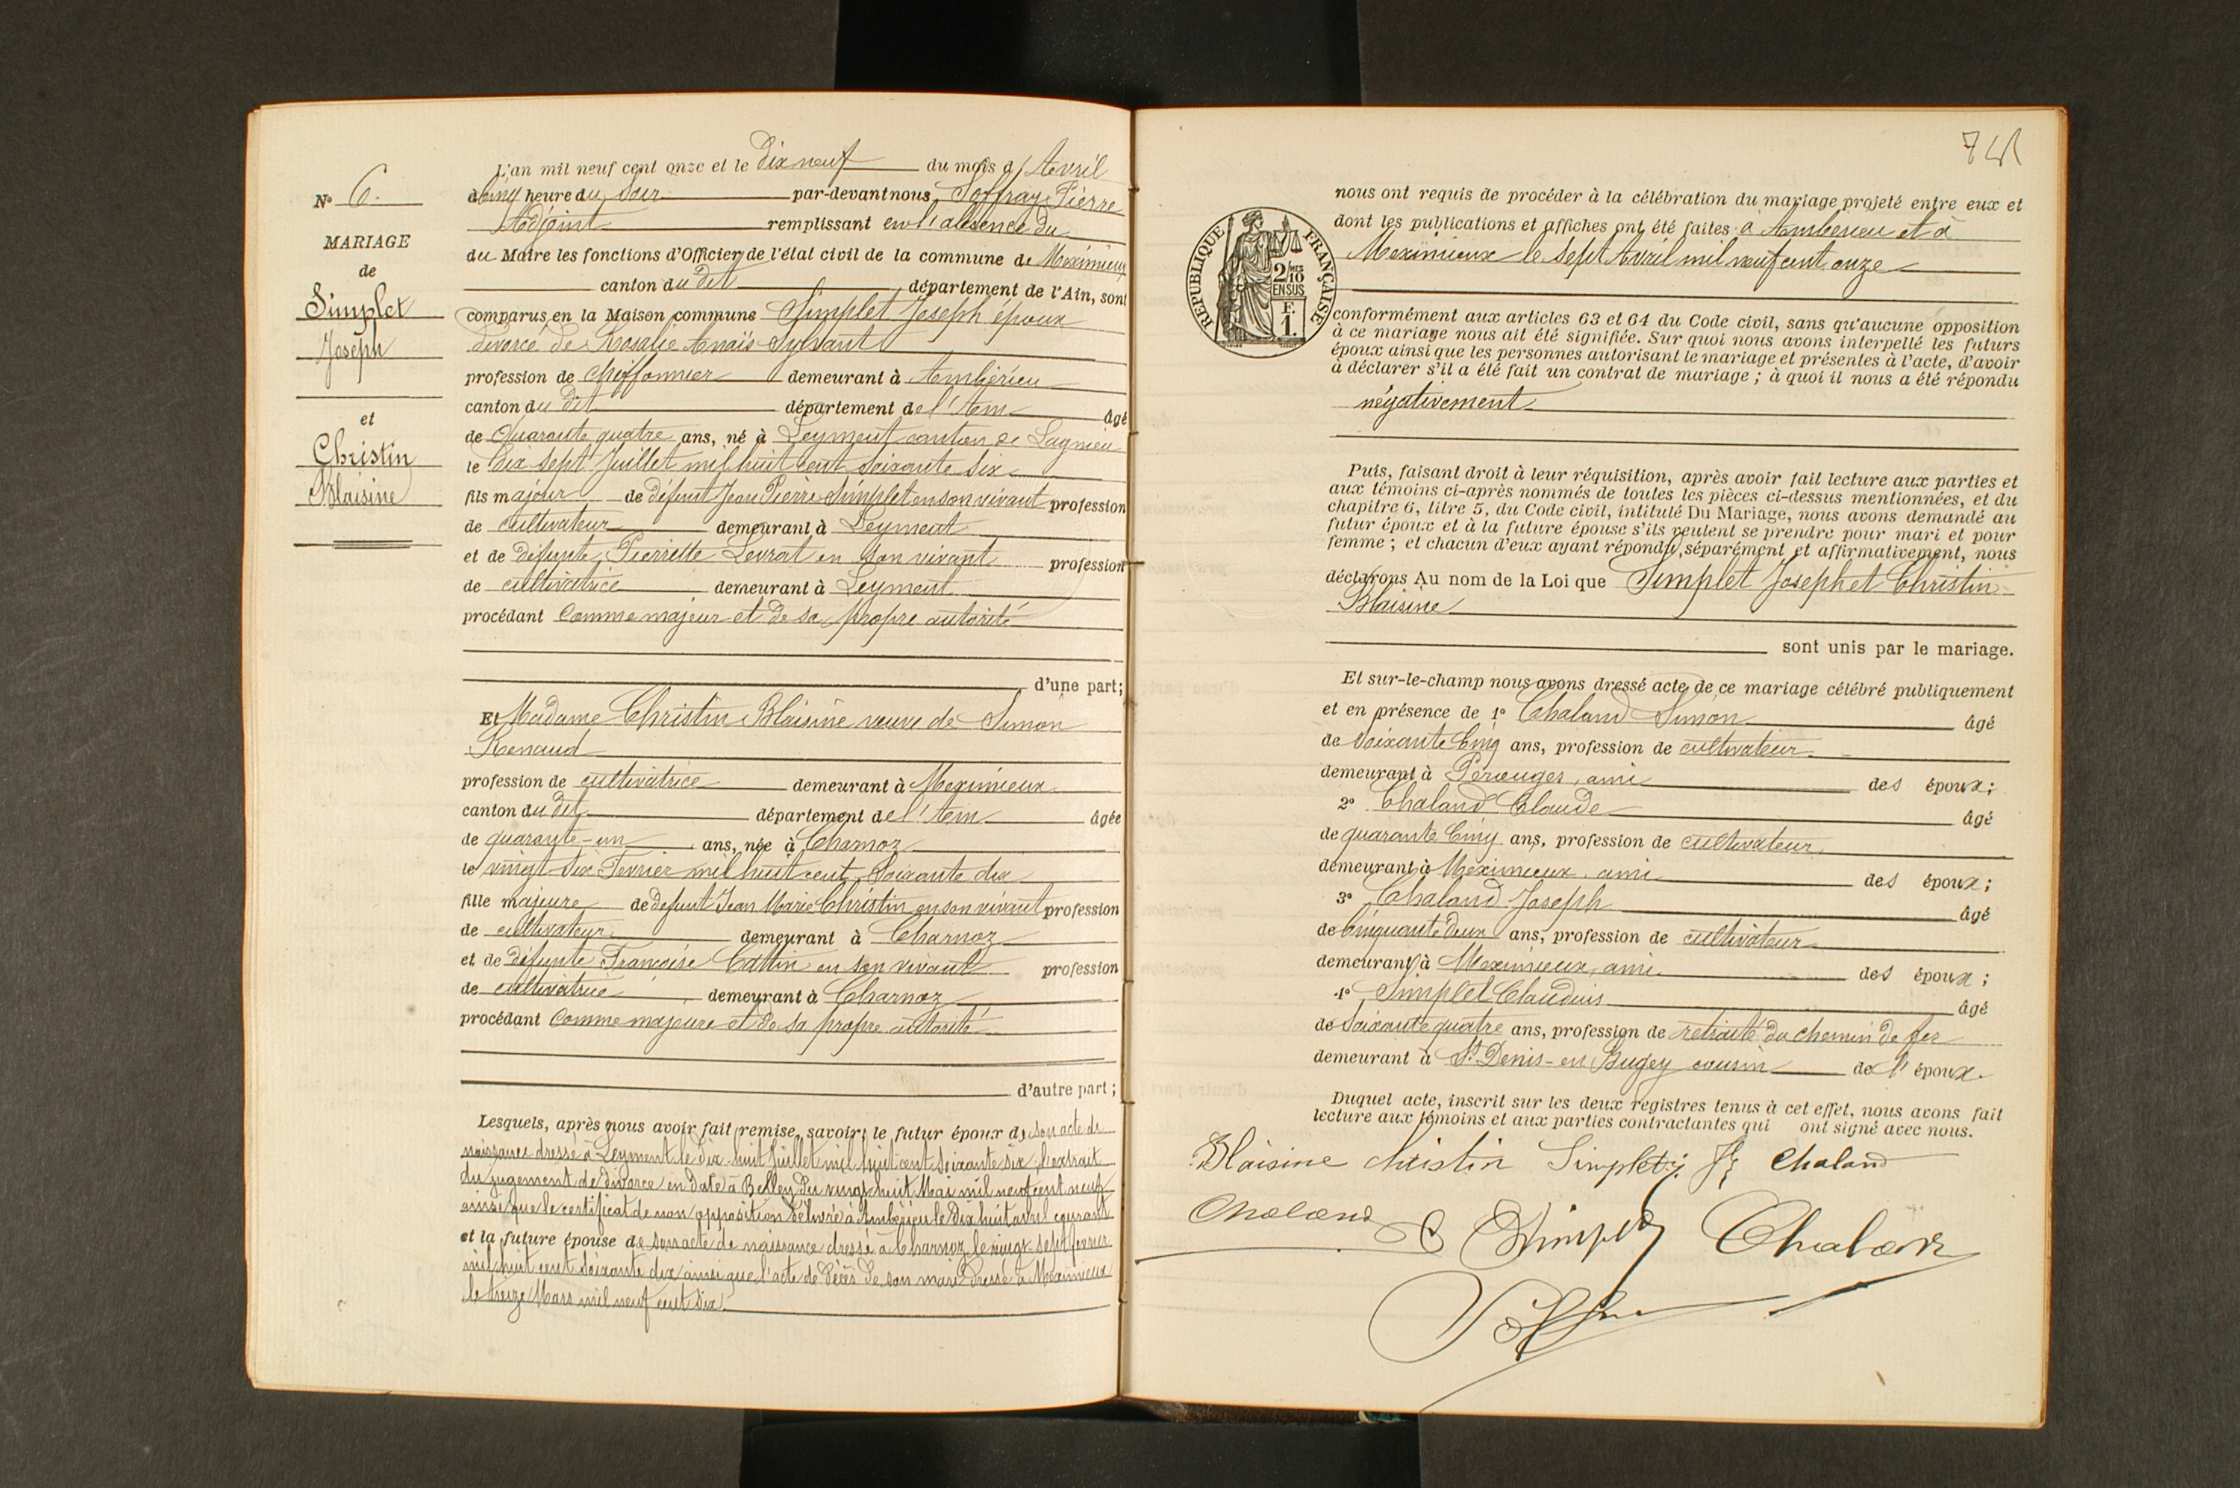 N° 6.
MARIAGE
de
Simplet
Joseph
et
Christin
Blaisine
L'an mil neuf cent onze et le dix neuf du mois d'Avril
à Cinq heure du Soir par-devant nous, Soffray Pierre
Adjoint remplissant en l'absence du
du Maire les fonctions d'Officier de l'état civil de la commune de Meximieux
canton du dit département de l'Ain, sont
comparus en la Maison commune Simplet Joseph époux
divorcé de Rosalie Anaïs Sylvant
profession de chiffonnier demeurant à Ambérieu
canton du dit département de l'Ain âgé
de Quarante quatre ans, né à Leyment canton de Lagnieu
le Dix sept Juillet mil huit cent soixante six
fils majeur de défunt Jean Pierre Simplet en son vivant profession
de cultivateur demeurant à Leyment
et de défunte Pierrette Levrat en son vivant profession
de cultivatrice demeurant à Leyment
procédant comme majeur et de sa propre autorité
d'une part;
Et Madame Christin Blaisine veuve de Simon
Renaud
profession de cultivatrice demeurant à Meximieux
canton du dit département de l'Ain âgée
de quarante-un ans, née à Charnoz
le vingt six Fevrier mil huit cent Soixante dix
fille majeure de defunt Jean Marie Christin en son vivant profession
de cultivateur demeurant à Charnoz
et de défunte Françoise Cattin en son vivant profession
de cultivatrice demeurant à Charnoz
procédant comme majeure et de sa propre autorité
d'autre part;
Lesquels, après nous avoir fait remise, savoir: le futur époux de son acte de
naissance dressé à Leyment le Dix-huit Juillet mil huit cent soixante six, l'extrait
du jugement de divorce en date à Belley du vingt huit Mai mil neuf cent neuf
ainsi que le certificat de non opposition délivré à Ambérieu le Dix huit avril courant
et la future épouse de son acte de naissance dressé à Charnoz le vingt-sept fevrier
mil huit cent soixante dix ainsi que l'acte de décès de son mari dressé à Meximieux
le treize Mars mil neuf cent dix
nous ont requis de procéder à la célébration du mariage projeté entre eux et
dont les publications et affiches ont été faites à Amberieu et à
Meximieux le sept Avril mil neuf cent onze
RÉPUBLIQUE FRANÇAISE
2/10 MES
EN SUS
F.
1.
conformément aux articles 63 et 64 du Code civil, sans qu'aucune opposition
à ce mariage nous ait été signifiée. Sur quoi nous avons interpellé les futurs
époux ainsi que les personnes autorisant le mariage et présentes à l'acte, d'avoir
à déclarer s'il a été fait un contrat de mariage; à quoi il nous a été répondu
négativement
Puis, faisant droit à leur réquisition, après avoir fait lecture aux parties et
aux témoins ci-après nommés de toutes les pièces ci-dessus mentionnées, et du
chapitre 6, titre 5, du Code civil, intitulé Du Mariage, nous avons demandé au
futur époux et à la future épouse s'ils veulent se prendre pour mari et pour
femme; et chacun d'eux ayant répondu, séparément et affirmativement, nous
déclarons Au nom de la Loi que Simplet Joseph et Christin
Blaisine
sont unis par le mariage.
Et sur-le-champ nous avons dressé acte de ce mariage célébré publiquement
et en présence de 1° Chaland Simon âgé
de Soixante Cinq ans, profession de cultivateur
demeurant à Pérouges, ami des époux;
2° Chaland Claude âgé
de quarante Cinq ans, profession de cultivateur
demeurant à Meximieux ami des époux;
3° Chaland Joseph âgé
de Cinquante deux ans, profession de cultivateur
demeurant à Meximieux, ami des époux;
4° Simplet Claudius âgé
de Soixante quatre ans, profession de retraité du chemin de fer
demeurant à St Denis-en Bugey cousin de l'époux.
Duquel acte, inscrit sur les deux registres tenus à cet effet, nous avons fait
lecture aux témoins et aux parties contractantes qui ont signé avec nous.
Blaisine christin Simplet j. Chaland
Chaland C Simplet Chaland